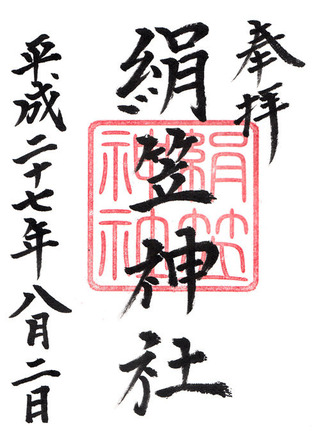 奉拝
絹笠神社
絹笠神社
平成二十七年八月二日